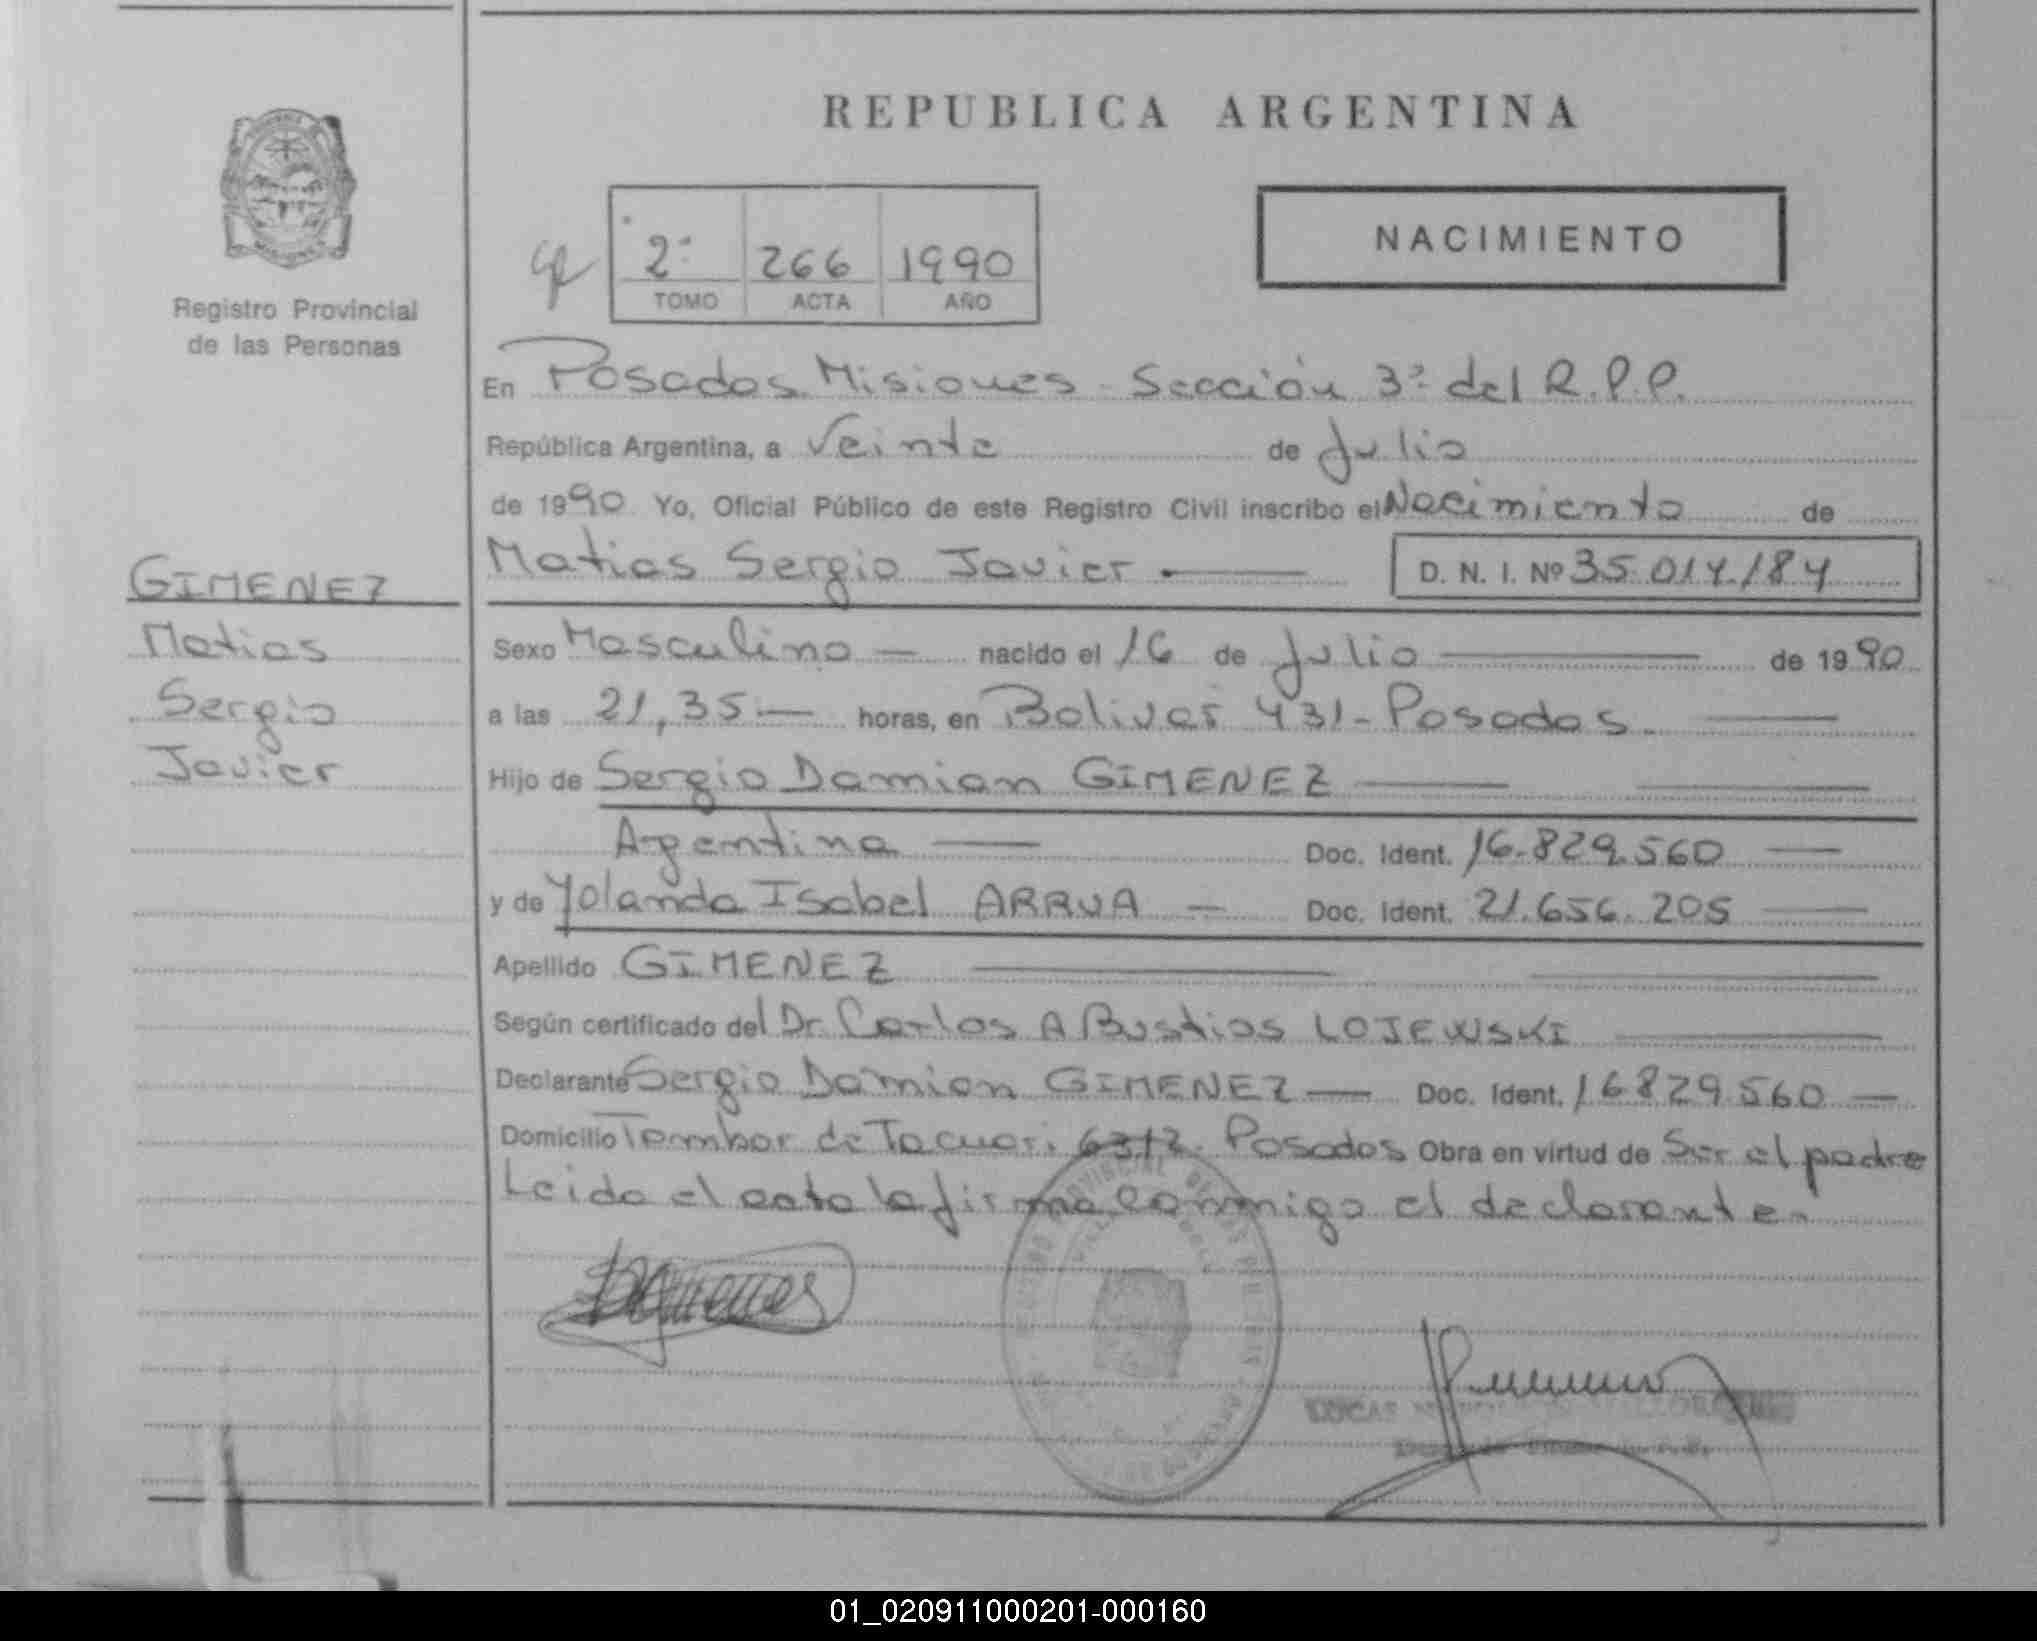 REPUBLICA ARGENTINA
NACIMIENTO
2º 266 1990
TOMO ACTA AÑO
Registro Provincial
de las Personas
En Posadas Misiones - Sección 3º del R.P.P.
República Argentina, a Veinte de Julio
de 1990 Yo, Oficial Público de este Registro Civil inscribo el Nacimiento de
Matias Sergio Javier D. N. I. Nº 35.014.184
GIMENEZ
Matias
Sergio
Javier
Sexo Masculino nacido el 16 de Julio de 1990
a las 21,35 horas, en Bolivar 431 - Posadas.
Hijo de Sergio Damian GIMENEZ
Argentina Doc. Ident. 16.829.560
y de Yolanda Isabel ARRUA Doc. Ident. 21.656.205
Apellido GIMENEZ
Según certificado del Dr. Carlos A Bustios LOJEWSKI
Declarante Sergio Damian GIMENEZ Doc. Ident. 16829.560
Domicilio Tambor de Tacuari 6312. Posados Obra en virtud de Ser el padre
Leida el acta la firma conmigo el declarante.
LUCAS
01_020911000201-000160